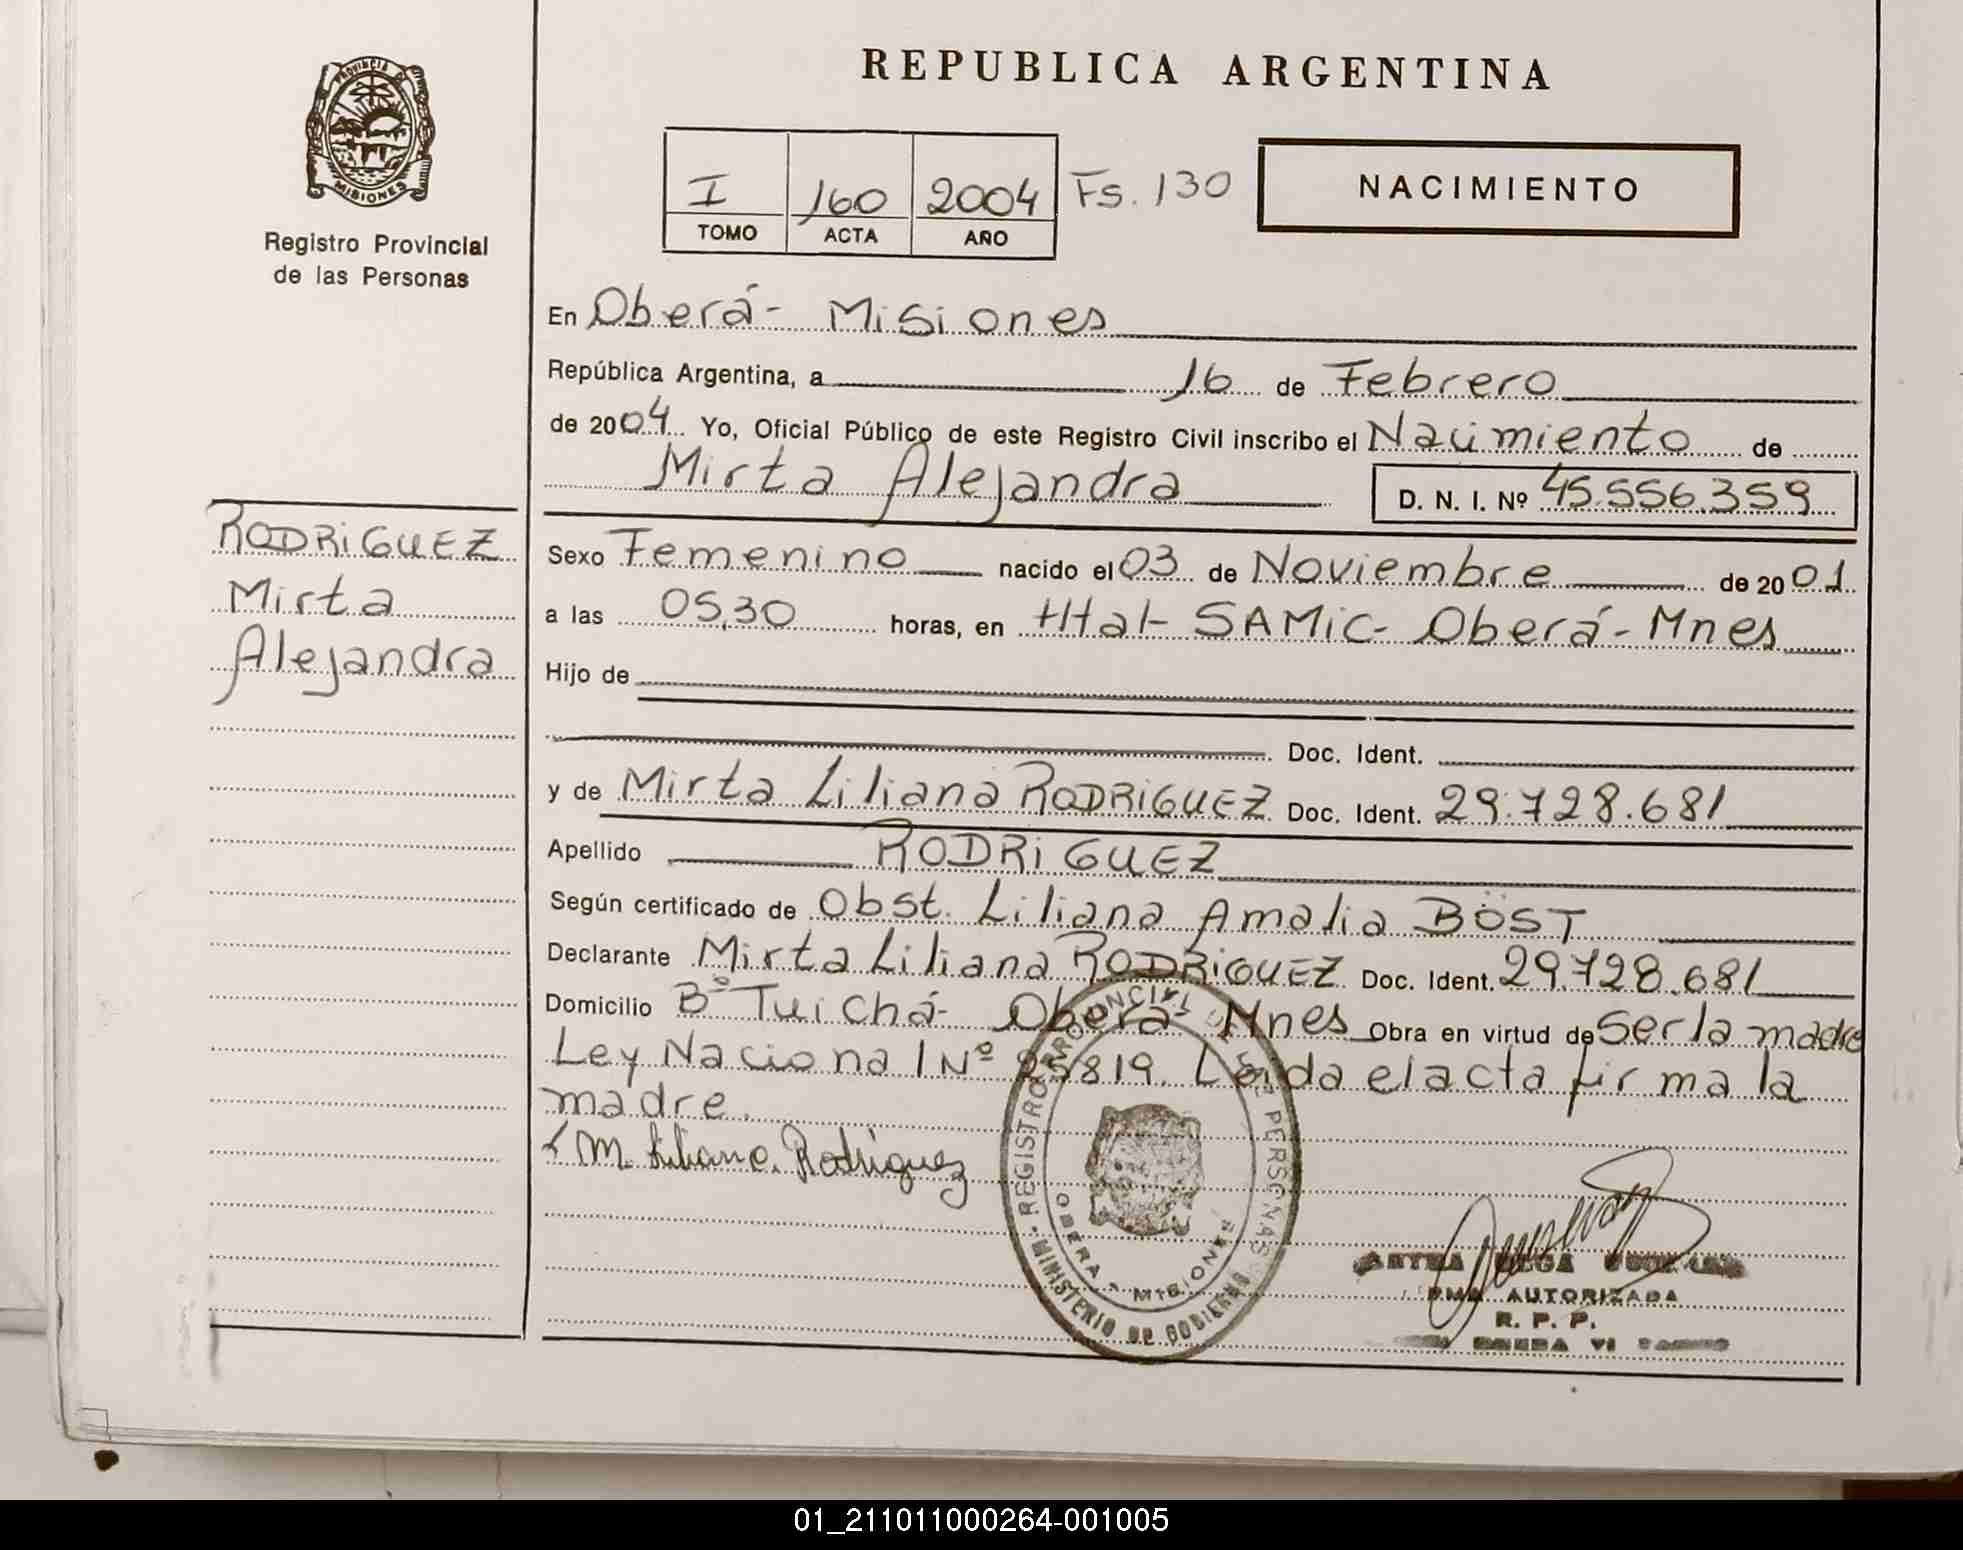 REPUBLICA ARGENTINA
PROVINCIA DE
MISIONES
Registro Provincial
de las Personas
I 160 2004 Fs. 130
TOMO ACTA AÑO
NACIMIENTO
En Oberá - Misiones
República Argentina, a 16 de Febrero
de 2004 Yo, Oficial Público de este Registro Civil inscribo el Nacimiento de
Mirta Alejandra D. N. I. Nº 45.556.359
RODRIGUEZ
Mirta
Alejandra
Sexo Femenino nacido el 03 de Noviembre de 2001
a las 05,30 horas, en Htal- SAMiC- Oberá- Mnes
Hijo de
Doc. Ident.
y de Mirta Liliana RODRIGUEZ Doc. Ident. 29.728.681
Apellido RODRIGUEZ
Según certificado de Obst. Liliana Amalia BÖST
Declarante Mirta Liliana RODRIGUEZ Doc. Ident. 29.728.681
Domicilio Bº Tuichá- Oberá- Mnes Obra en virtud de Ser la madre
Ley Nacional Nº 25819. Leída el acta firma la
madre.
M. Liliana. Rodriguez
REGISTRO PROVINCIAL DE LAS PERSONAS
OBERA - MISIONES
MINISTERIO DE GOBIERNO
AUTORIZADA
R. P. P.
01_211011000264-001005